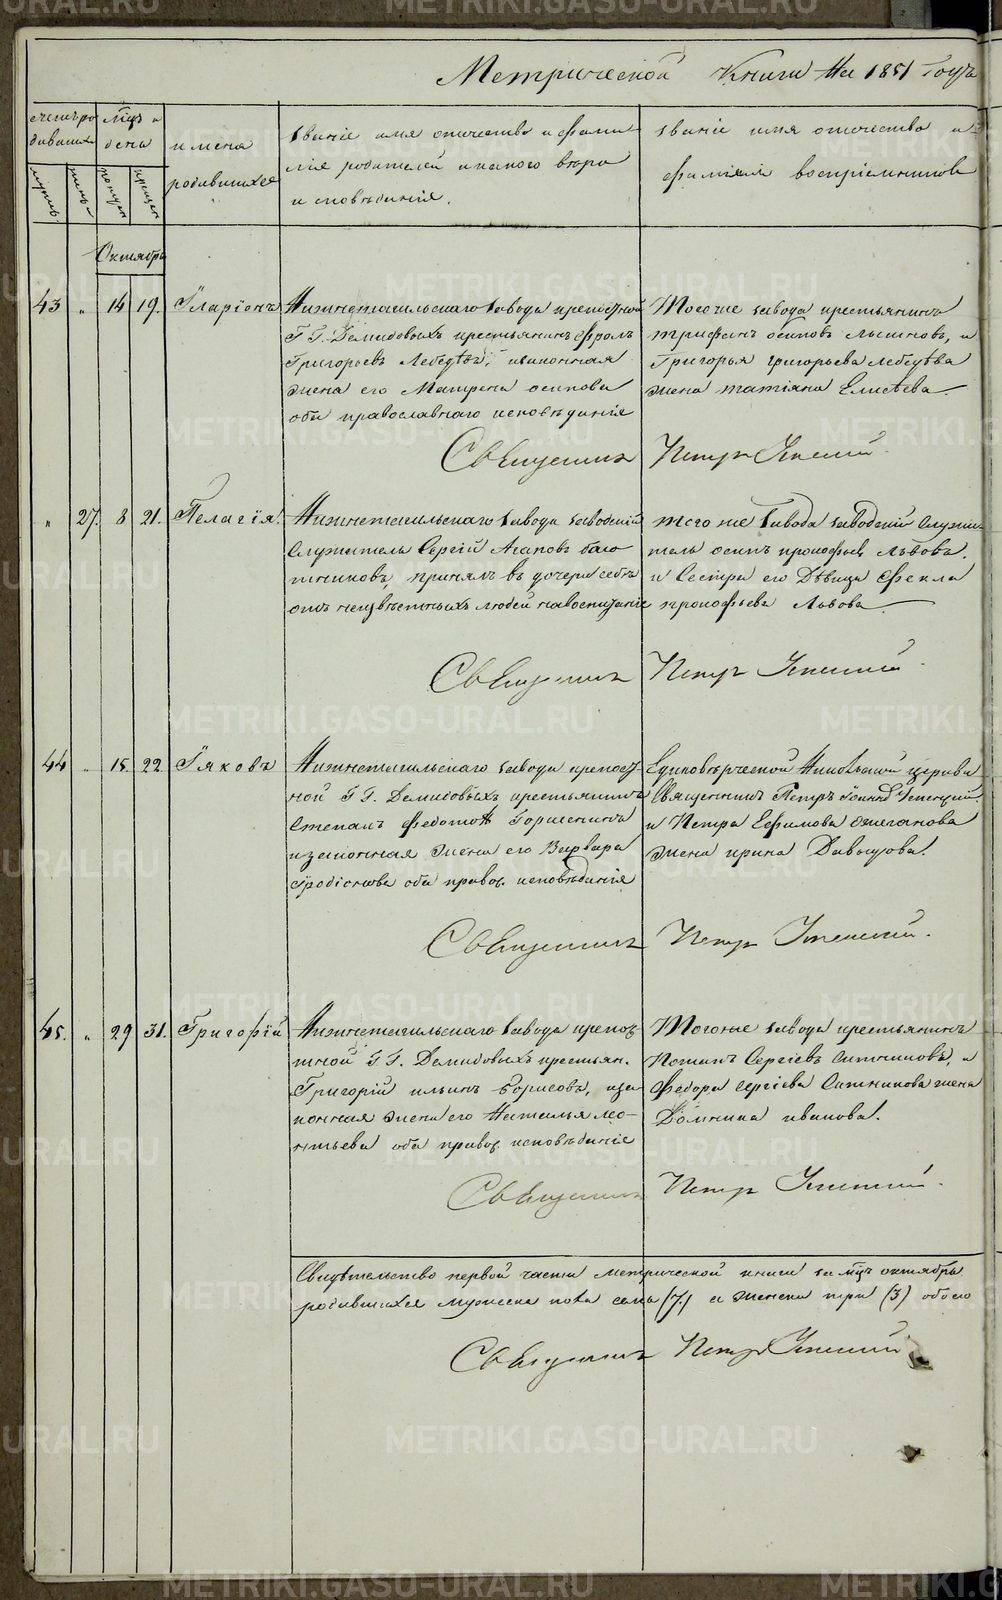 Метрической Книги На 1851 Годъ
счетъ ро
дившихся
мужес.
женс.
мѣць и
день
рожден
крещен
имена
родившихся
Званіе имя отечество и фами
лія родителей и какого вѣро
исповѣданія.
званіе имя отечество и
фамилія воспріемниковъ
Октябрь
43 " 14 19. Иларіонъ
Нижнетагильскаго завода крепостной
Г Г. Демидовыхъ крестьянинъ Фролъ
Григорьевъ Лебедевъ, и законная
жена его Матрена осипова
оба православнаго исповѣданія
Тогоже завода крестьянинъ
трифонъ осиповъ, и
Григорья григорьева лебедева
жена татіяна Елисѣева.
Священникъ Петръ Успенскій
" 27. 8 21. Пелагія.
Нижнетагильскаго завода заводскій
служитель Сергій Агаповъ
принялъ въ дочери себѣ
отъ неизвѣстныхъ людей на воспитаніе
того же завода заводскій служи
тель осипъ прокофьев Львовъ.
и Сестра его Дѣвица Фекла
прокофьева Львова
Священникъ Петръ Успенскій
44 " 15. 22. Іяковъ
Нижнетагильскаго завода крепост
ной Г Г. Демидовыхъ крестьянинъ
Степанъ Федотов Горшенинъ
и законная жена его Варвара
Іродіонова оба правос. исповѣданія
Единовѣрческой Никольской церкви
Священникъ Петръ Іоаннов Успенскій.
и Петра Ефимова ожиганова
жена ирина Давыдова.
Священникъ Петръ Успенскій.
45. " 29 31. Григорій
Нижнетагильскаго завода крепос
тной Г. Г. Демидовыхъ крестьян.
Григорій ильинъ Борисовъ, иза
конная жена его Наталья лео-
нтьева оба правос. исповѣданіе
Тогоже завода крестьянинъ
Потапъ Сергіевъ Ситниковъ, и
Федора сергіева Ситникова жена
Домника иванова.
Священникъ Петръ Успенскій.
Свидѣтельство первой части метрической книги за мѣць октябрь
родившихся мужеска пола семь (7.) а женска три (3) обоего
Священникъ Петръ Успенскій
METRIKI.GASO-URAL.RU